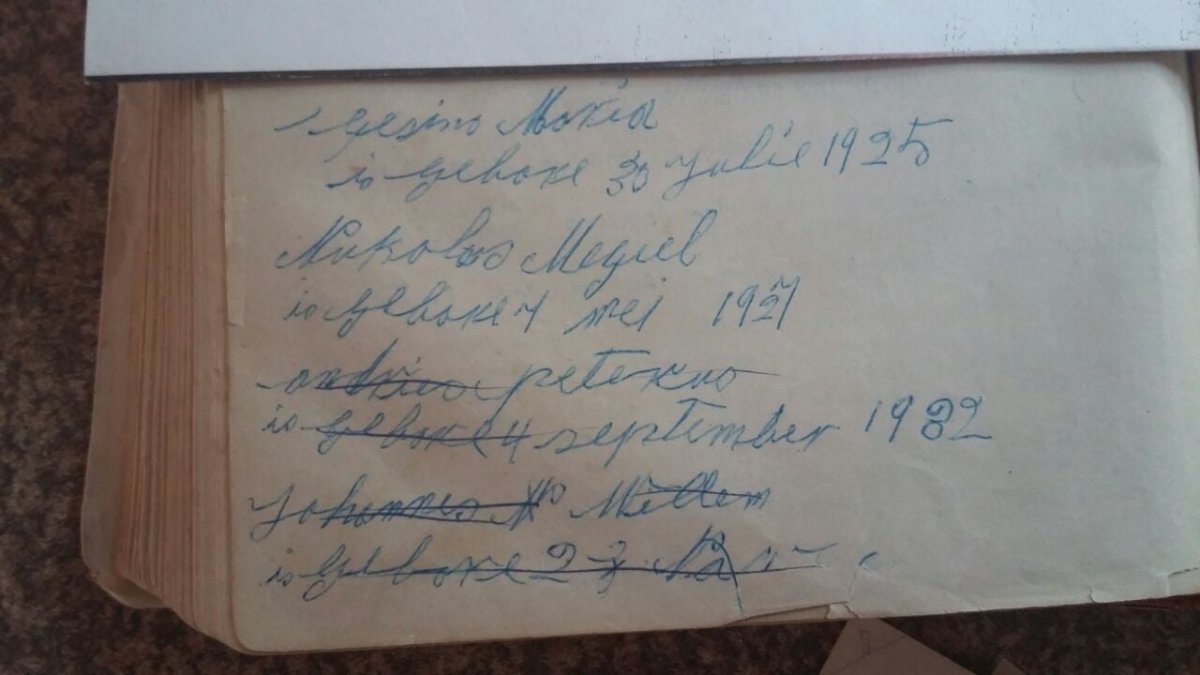 Gesino Maria
is geboke 30 Julie 1925
Nikolas Megiel
is geboke 4 mei 1927
petekno
is geboke 4 september 1932
Johannes Willem
is geboke 23